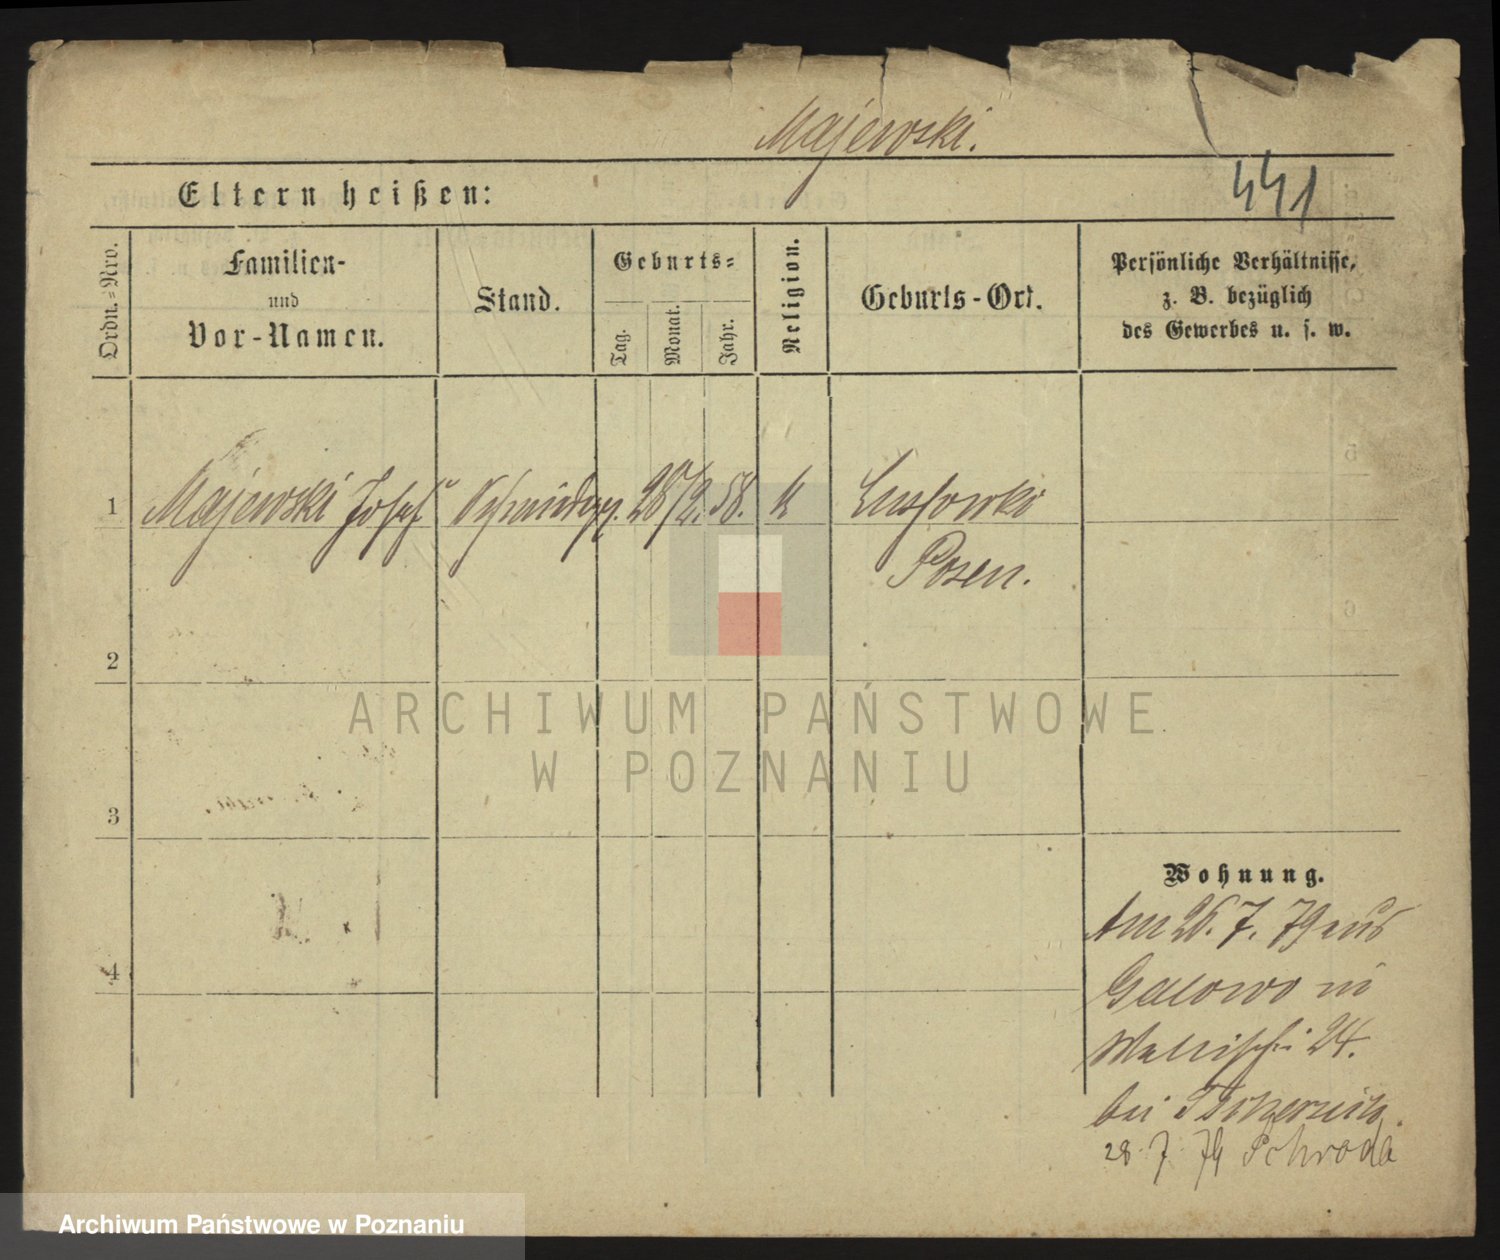 Majewski.
Eltern heißen:
441
Ordn.=Nro.
Familien-
und
Vor-Namen.
Stand.
Geburts=
Tag.
Monat.
Jahr.
Religion.
Geburts-Ort.
Persönliche Verhältnisse,
z. B. bezüglich
des Gewerbes u. s. w.
1 Majewski Josef Schmiedeges. 28/2. 58. k Lussowko
Posen.
2
3
4
Wohnung.
Am 26. 7. 79 aus
Gallowo in
Wallischei 24.
bei
28. 7. 79 Schroda
ARCHIWUM PAŃSTWOWE
W POZNANIU
Archiwum Państwowe w Poznaniu